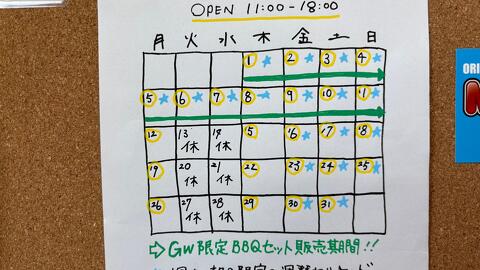 OPEN 11:00-18:00
月 火 水 木 金 土 日
1 2 3 4
5 6 7 8 9 10 11
12 13 休 14 休 15 16 17 18
19 20 休 21 休 22 23 24 25
26 27 休 28 休 29 30 31
⇨ GW限定 BBQセット販売期間!!
ORI